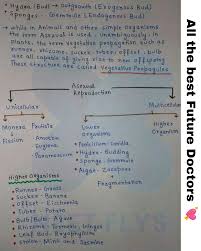 • Hydra (Bud) → Outgrowth (Exogenous Bud)
• Sponges → Gemmule (Endogenous Bud)
→ While in Animals and other simple organisms
the term Asexual is used unambiguously, in
Plants, the term vegetative propagation such as
runner, rhizome, sucker, tuber, offset, bulb
are all capable of giving rise to new offspring
These structure are called Vegetative Propagules
Asexual
Reproduction
Unicellular
Multicellular
Monera
Protista
Fission
Amoeba
Euglena
Paramoecium
Lower
organisms
Higher
Organism
• Penicillium: Conidia
• Hydra: Budding
• Sponge: Gemmule
• Algae: Zoospores
Fragmentation
Higher Organisms
• Runner: Grass
• Sucker: Banana
• Offset: Eichhornia
• Tuber: Potato
• Bulb/Bulbil: Agave
• Rhizome: Turmeric, Ginger
• Leaf Bud: Bryophyllum
• Stolon: Mint and Jasmine
All the best Future Doctors